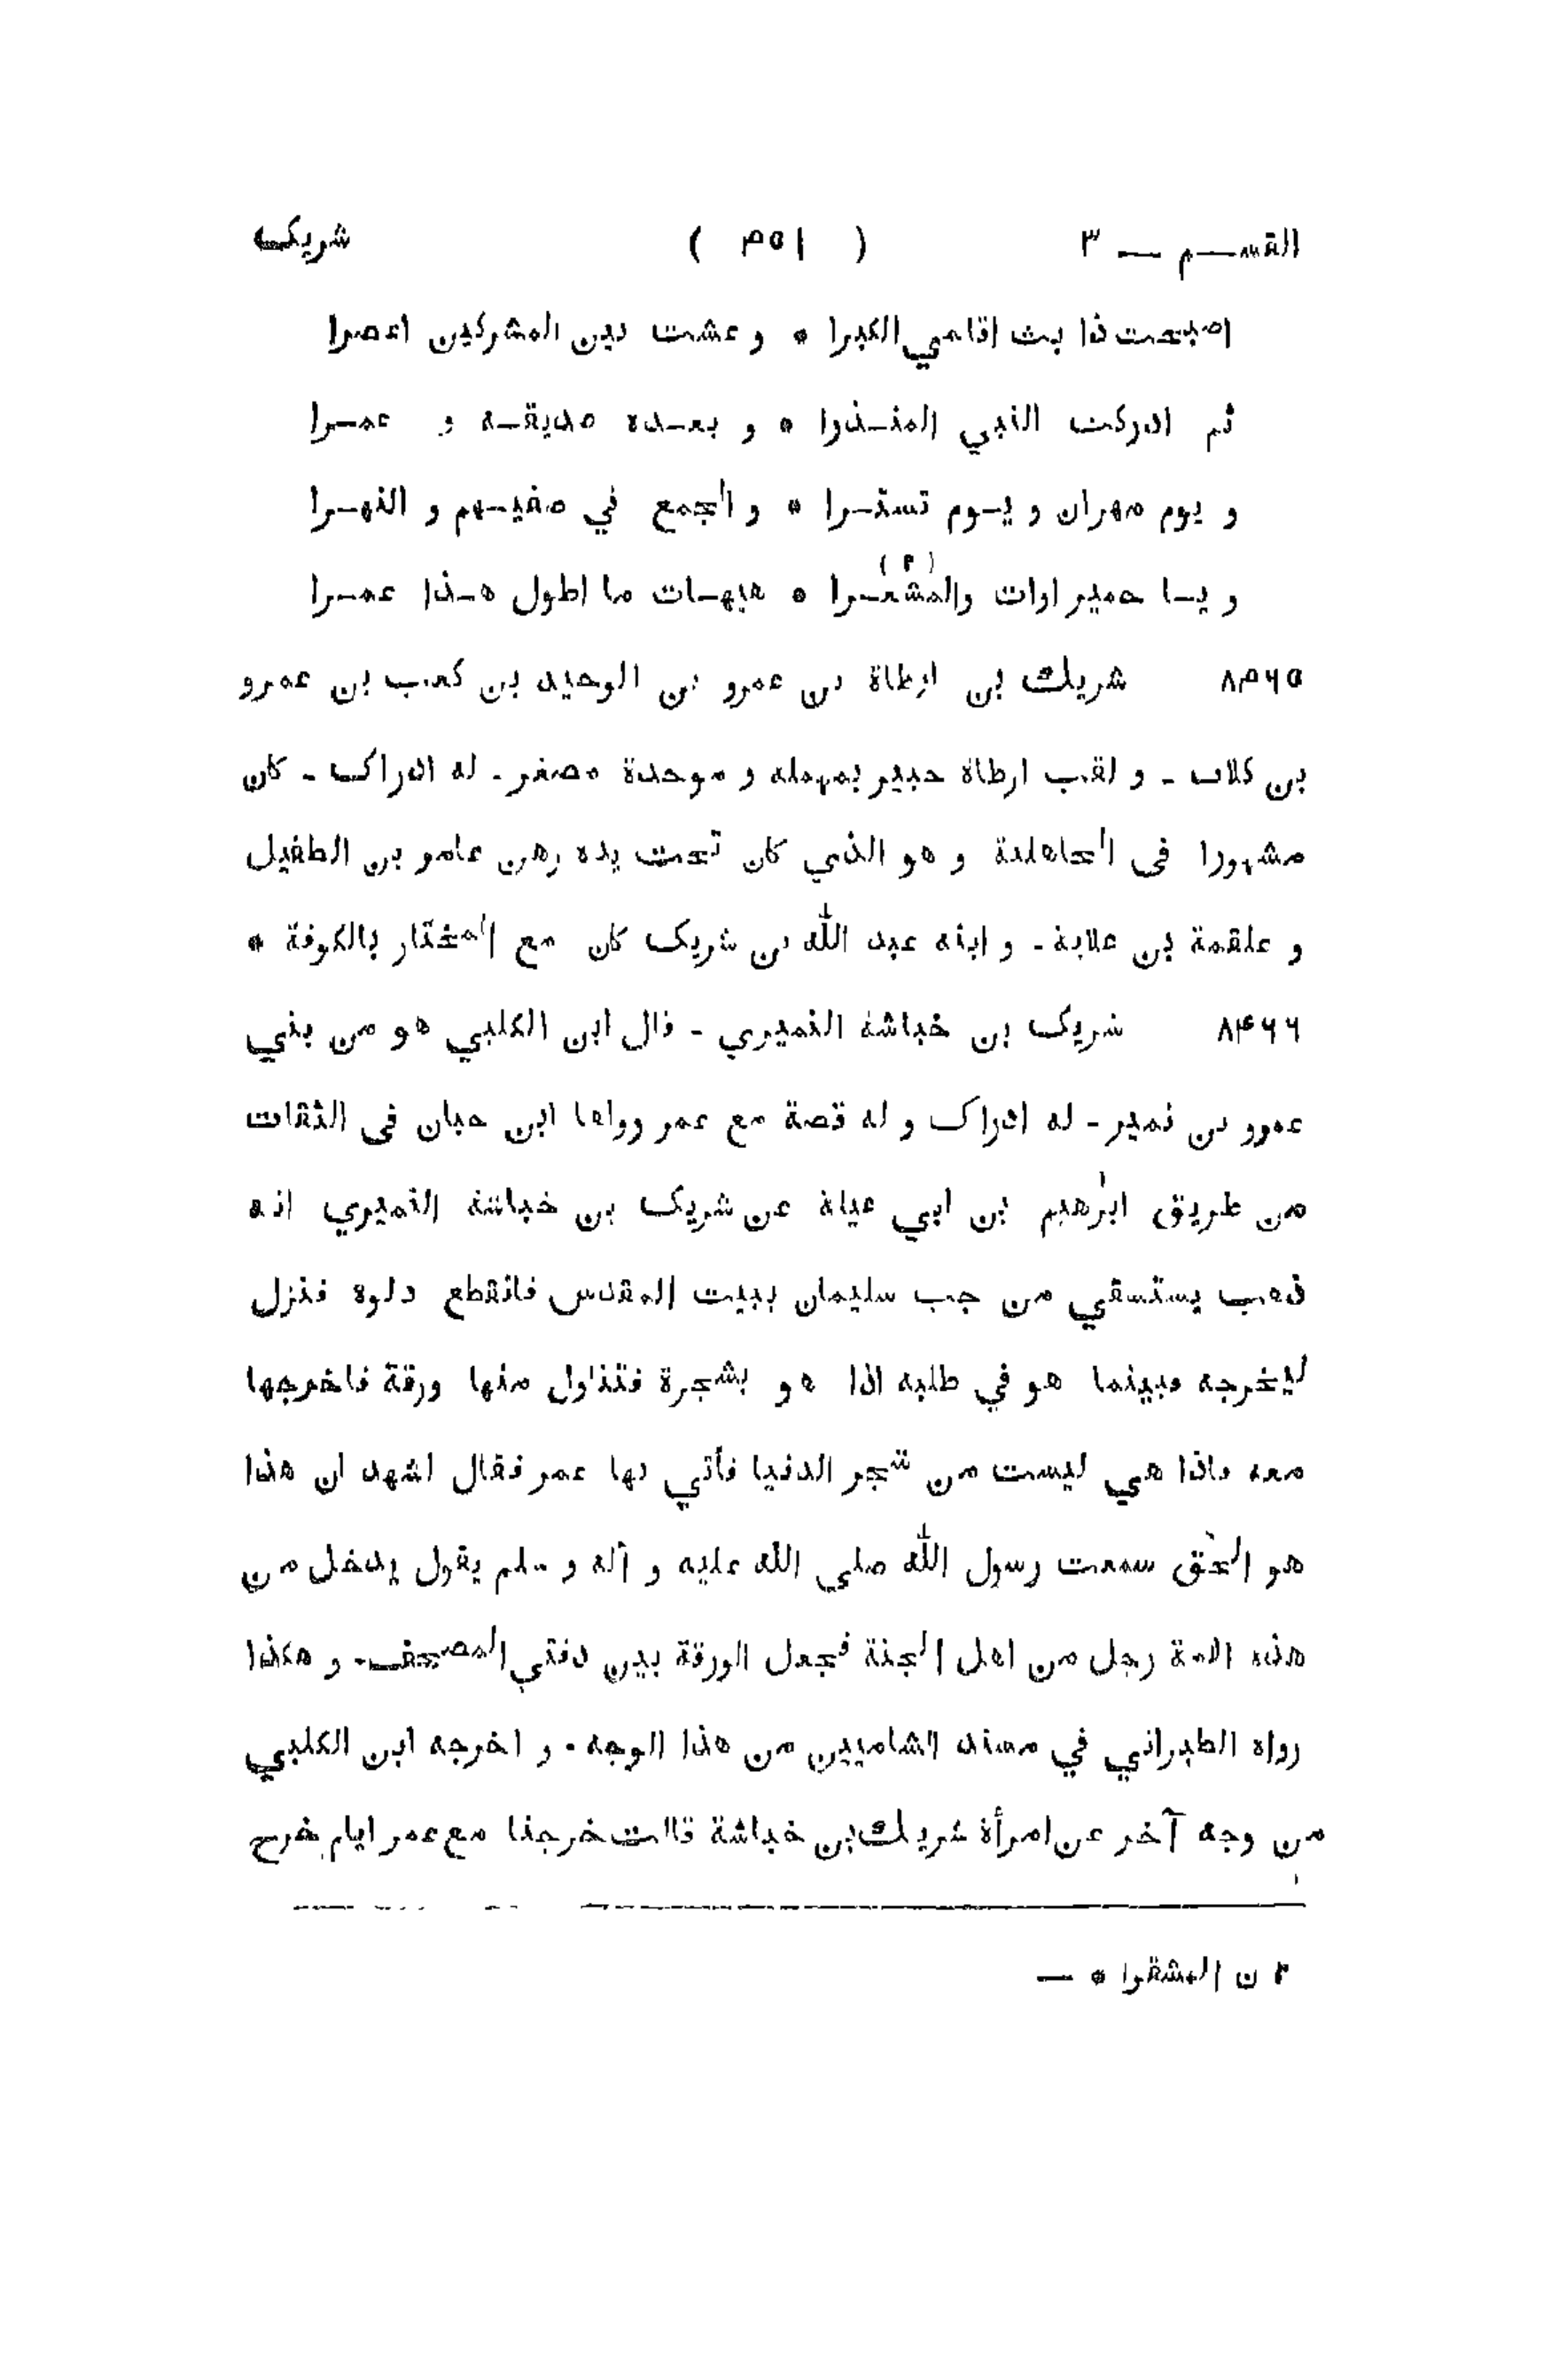 القســم — ٣ ( ٤٥١ ) شريك
اصبحت ذا بث اقاسي الكبرا * و عشت بين المشركين اعصرا
ثم ادركت النبي المنـذرا * و بعـده صديقـه و عمـرا
و يوم مهران و يـوم تستـرا * و الجمع في صفيـهم و النهـرا
و يـا حميراوات والمشعـرا (٢) * هيهـات ما اطول هـذا عمـرا
٨٤٦٥ شريك بن ارطاة بن عمرو بن الوحيد بن كعب بن عمرو
بن كلاب - و لقب ارطاة حبير بمهمله و موحدة مصغر - له ادراك - كان
مشهورا فى الجاهلية و هو الذي كان تحت يده رهن عامر بن الطفيل
و علقمة بن علاثة - و ابنه عبد الله بن شريك كان مع المختار بالكوفة *
٨٤٦٦ شريك بن خباشة النميري - قال ابن الكلبي هو من بني
عمرو بن نمير - له ادراك و له قصة مع عمر رواها ابن حبان فى الثقات
من طريق ابرهيم بن ابي عبلة عن شريك بن خباشة النميري انه
ذهب يستسقي من جب سليمان ببيت المقدس فانقطع دلوه فنزل
ليخرجه فبينما هو في طلبه اذا هو بشجرة فتناول منها ورقة فاخرجها
معه فاذا هي ليست من شجر الدنيا فأتي بها عمر فقال اشهد ان هذا
هو الحق سمعت رسول الله صلى الله عليه و آله و سلم يقول يدخل من
هذه الامة رجل من اهل الجنة فجعل الورقة بين دفتي المصحف - و هكذا
رواه الطبراني في مسند الشاميين من هذا الوجه - و اخرجه ابن الكلبي
من وجه آخر عن امرأة شريك بن خباشة قالت خرجنا مع عمر ايام خرج
٢ ن المشقرا * —